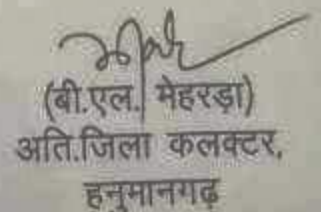 (बी.एल. मेहरड़ा)
अति.जिला कलक्टर,
हनुमानगढ़